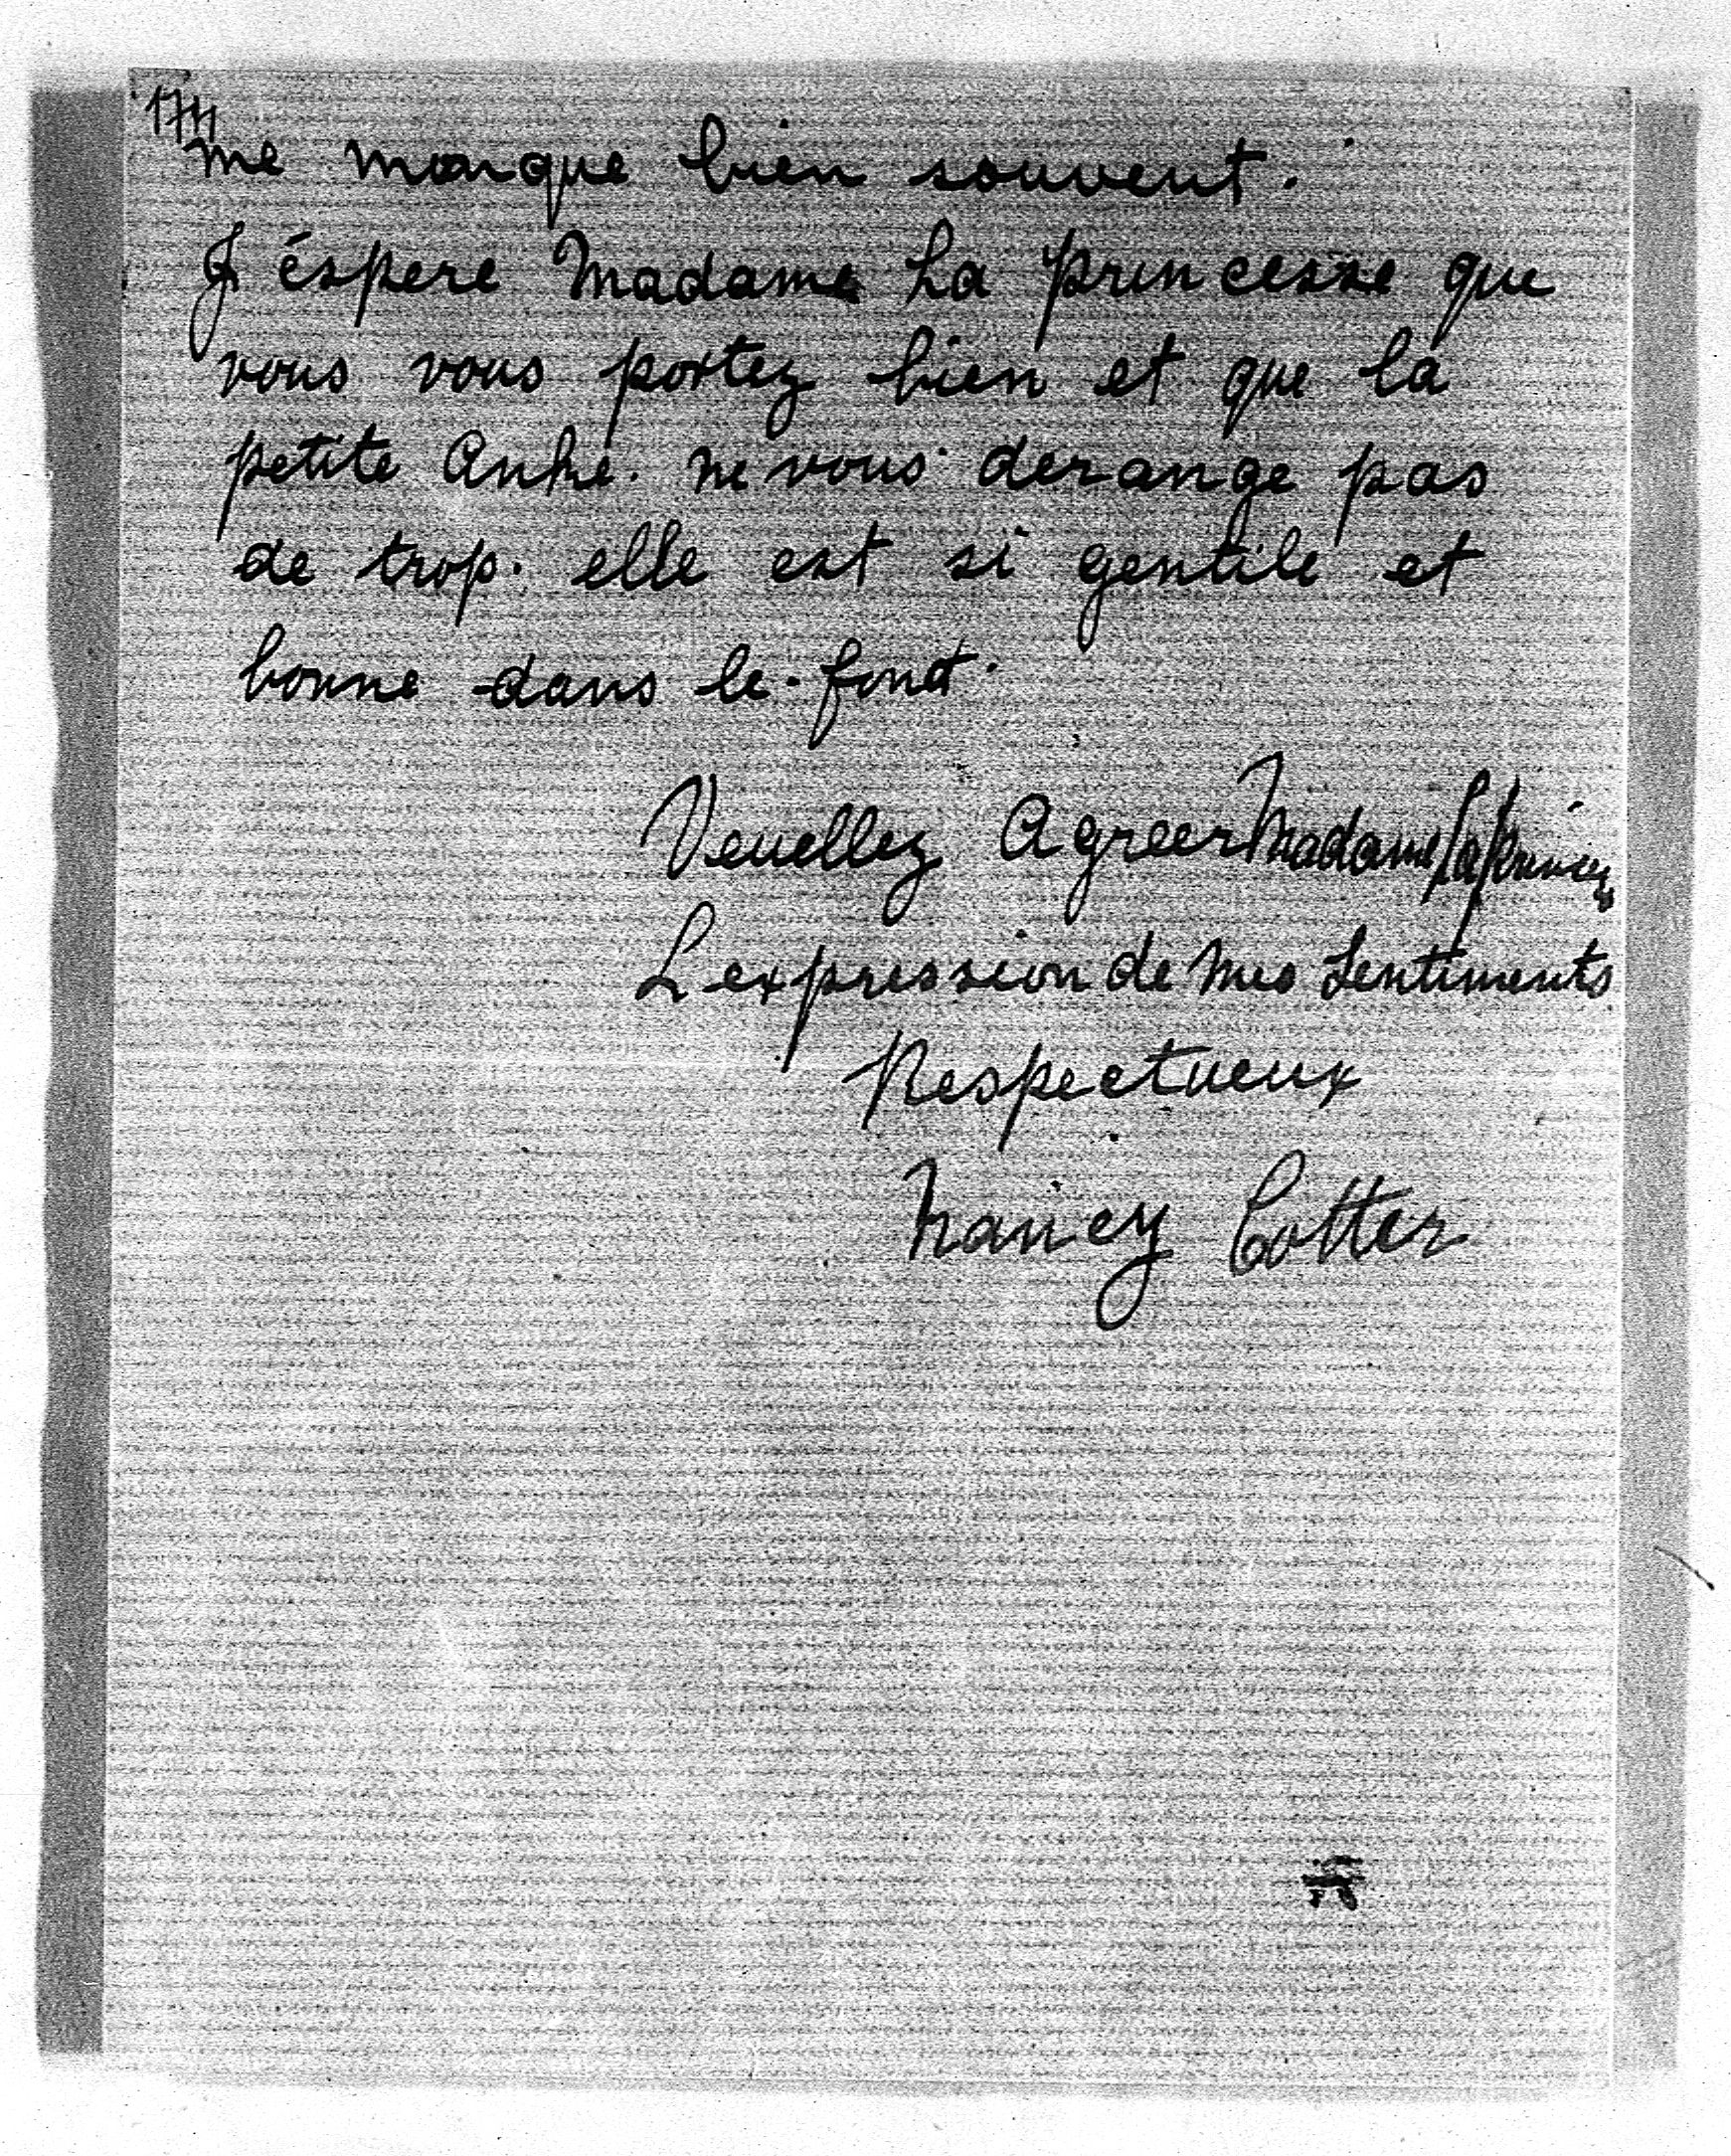 174
me manque bien souvent.
J éspere Madame La princesse que
vous vous portez bien et que la
petite Anhe. ne vous derange pas
de trop. elle est si gentile et
bonne dans le fond.
Veuellez Agreer Madame la
L expression de mes Sentiments
Respectueux
Nancy Cotter